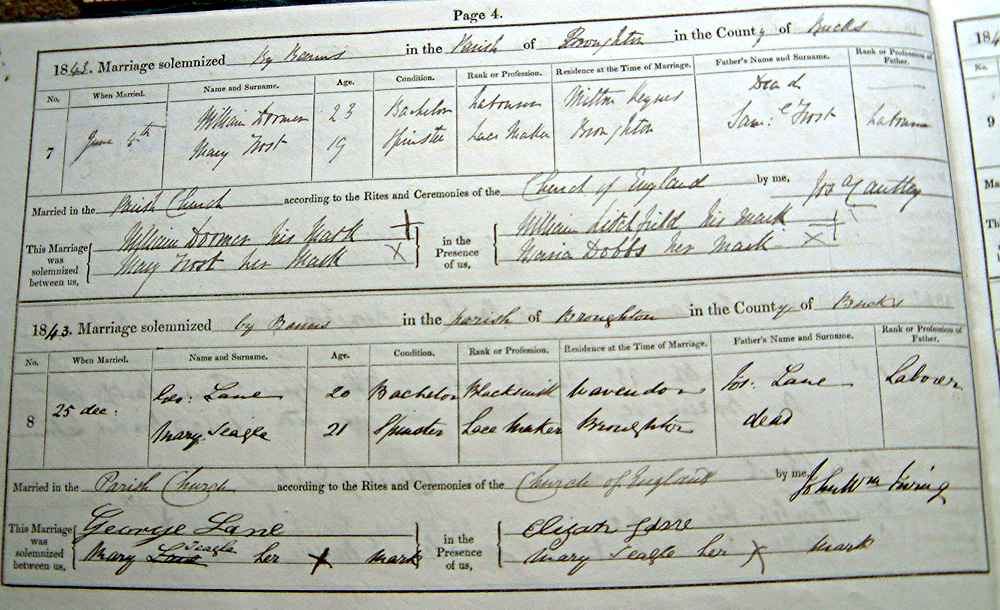 Page 4.
1843. Marriage solemnized By Banns in the Parish of Broughton in the County of Bucks
No. When Married. Name and Surname. Age. Condition. Rank or Profession. Residence at the Time of Marriage. Father's Name and Surname. Rank or Profession of Father.
7 June William Doomer 23 Bachelor Labourer Milton Keynes Dead
Mary Frost 19 Spinster Lace Maker Broughton Frost Labourer
Married in the Parish Church according to the Rites and Ceremonies of the Church of England by me,
This Marriage was solemnized between us,
William Doomer his Mark +
Mary Frost her Mark X
in the Presence of us,
William Litchfield his mark +
Maria Dobbs her Mark X
1843. Marriage solemnized by Banns in the parish of Broughton in the County of Bucks
No. When Married. Name and Surname. Age. Condition. Rank or Profession. Residence at the Time of Marriage. Father's Name and Surname. Rank or Profession of Father.
8 25 dec: Geo: Lane 20 Bachelor Blacksmith Wavendon Jos: Lane Laborer
Mary Seagle 21 Spinster Lace Maker Broughton dead
Married in the Parish Church according to the Rites and Ceremonies of the Church of England by me, John Wm
This Marriage was solemnized between us,
George Lane
Seagle
Mary Lane her X mark
in the Presence of us,
Elizah
Mary Seagle her X mark
184
No.
9
Ma
Th